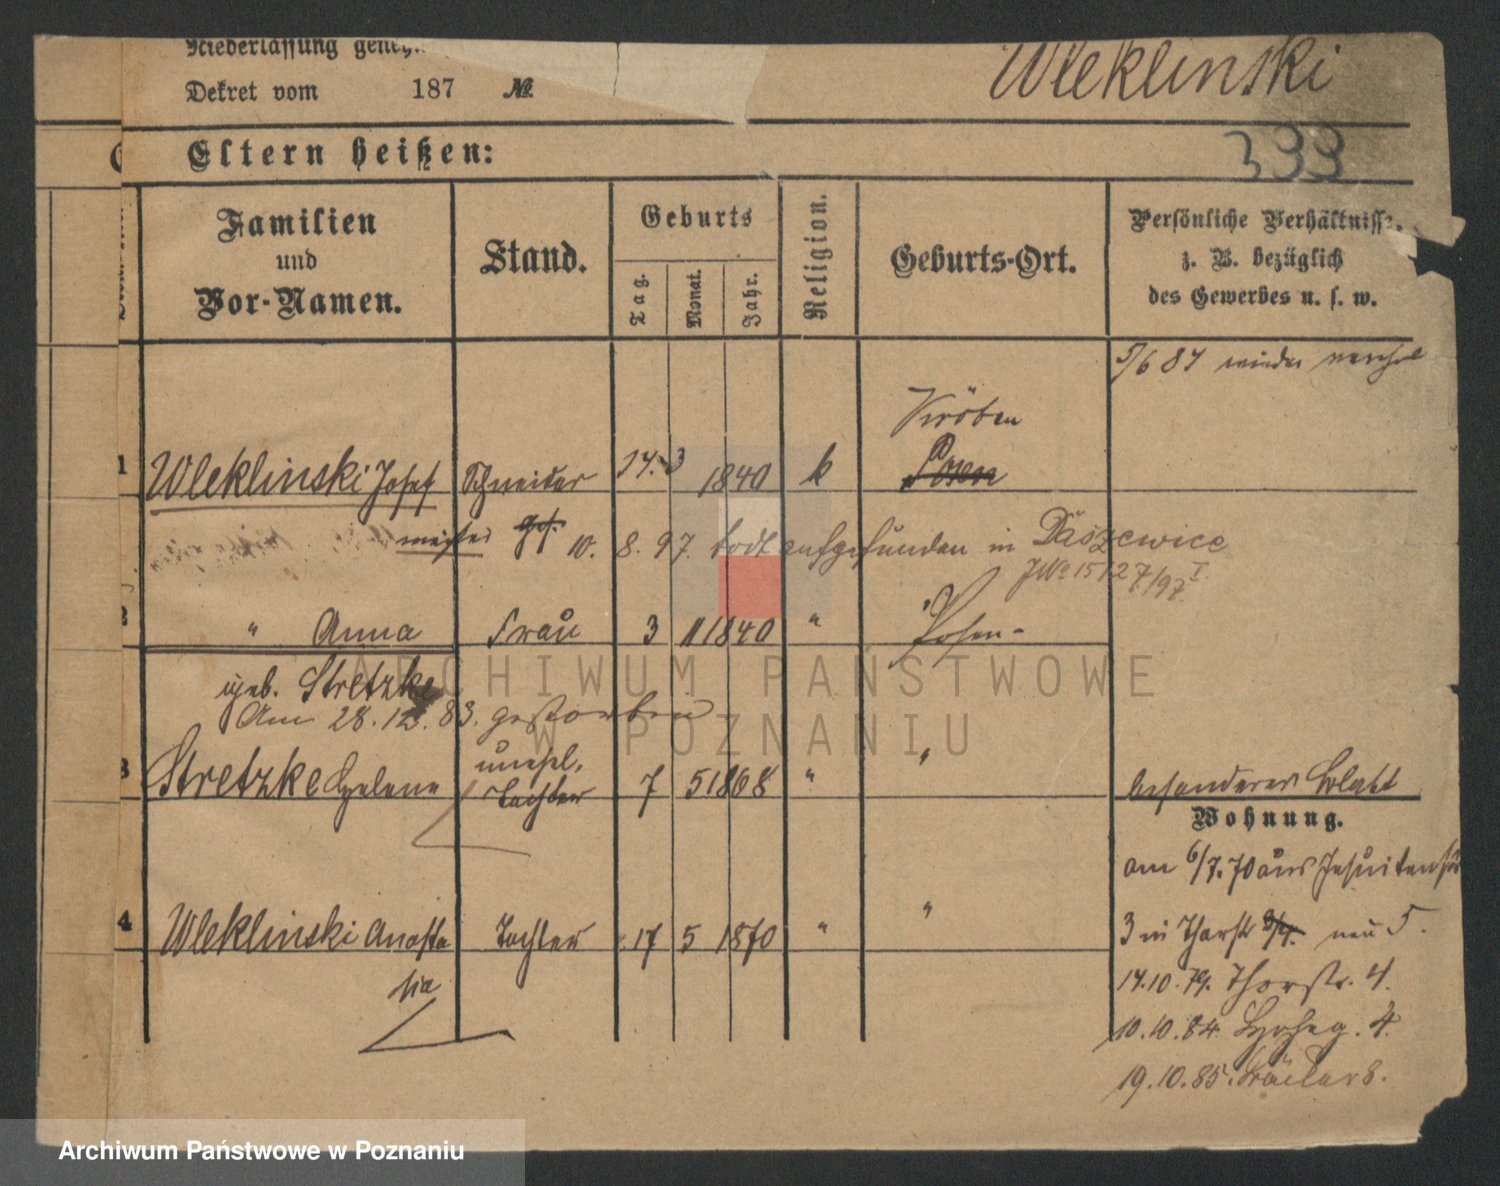 Niederlassung geneh
Dekret vom 187 №
Wleklinski
399
Eltern heißen:
Familien
und
Vor-Namen.
Stand.
Geburts
Tag.
Monat.
Jahr.
Religion.
Geburts-Ort.
Persönliche Verhältnisse,
z. B. bezüglich
des Gewerbes u. s. w.
5/6 87 wieder
Kröben
1 Wleklinski Josef Schneider 14. 3 1840 k Posen
meister 10. 8. 97. todt aufgefunden in Daszewice
J№ 15127/97. I.
2 " Anna Frau 3 11 1840 " Posen
geb. Stretzke
Am 28.12.83. gestorben
3 Stretzke Helene unehl. Tochter 7 5 1868 " "
besonderes Blatt
Wohnung.
am 6/7.70 aus Jesuitenstr
4 Wleklinski Anasta Tochter 17 5 1870 " "
sia
3 in Thorstr neu 5.
14.10.79. Thorstr. 4.
10.10.84. 4.
19.10.85. 8.
ARCHIWUM PAŃSTWOWE
W POZNANIU
Archiwum Państwowe w Poznaniu